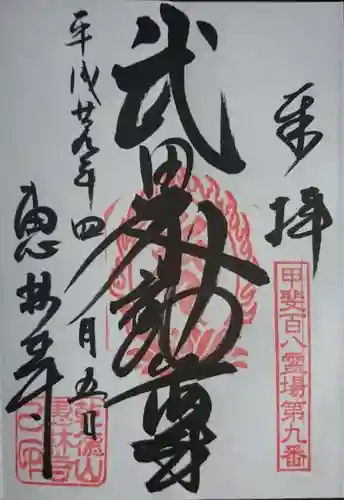 奉拝
甲斐百八霊場第九番
武田不動尊
平成廿九年四月五日
恵林寺